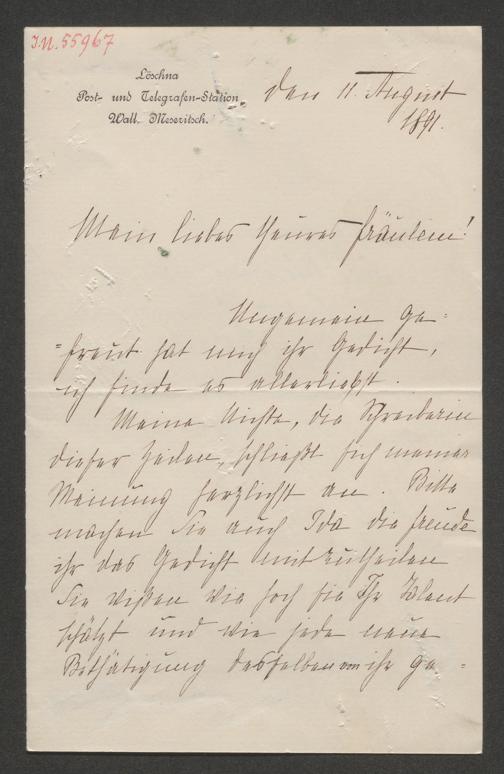 I.N. 55967
Löschna
Post- und Telegrafen-Station
Wall. Meseritsch.
den 11. August
1891.
Mein liebes theures Fräulein!
Ungemein ge-
-freut hat mich ihr Gedicht,
ich finde es allerliebst.
Meine Nichte, die Schreiberin
dieser Zeilen, schließt sich meiner
Meinung herzlichst an. Bitte
machen Sie auch Ida die Freude
ihr das Gedicht mitzutheilen
Sie wißen wie hoch sie Ihr Talent
schätzt und wie jede neue
Bethätigung desselben von ihr ge-